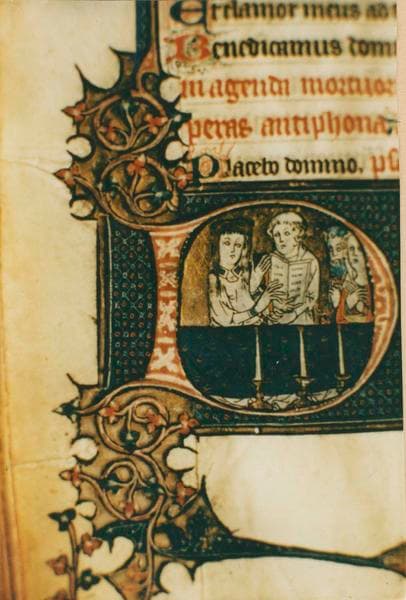 Et clamor meus ad
Benedicamus domi
in agenda mortuor
peras antiphona.
Placebo domino. ps